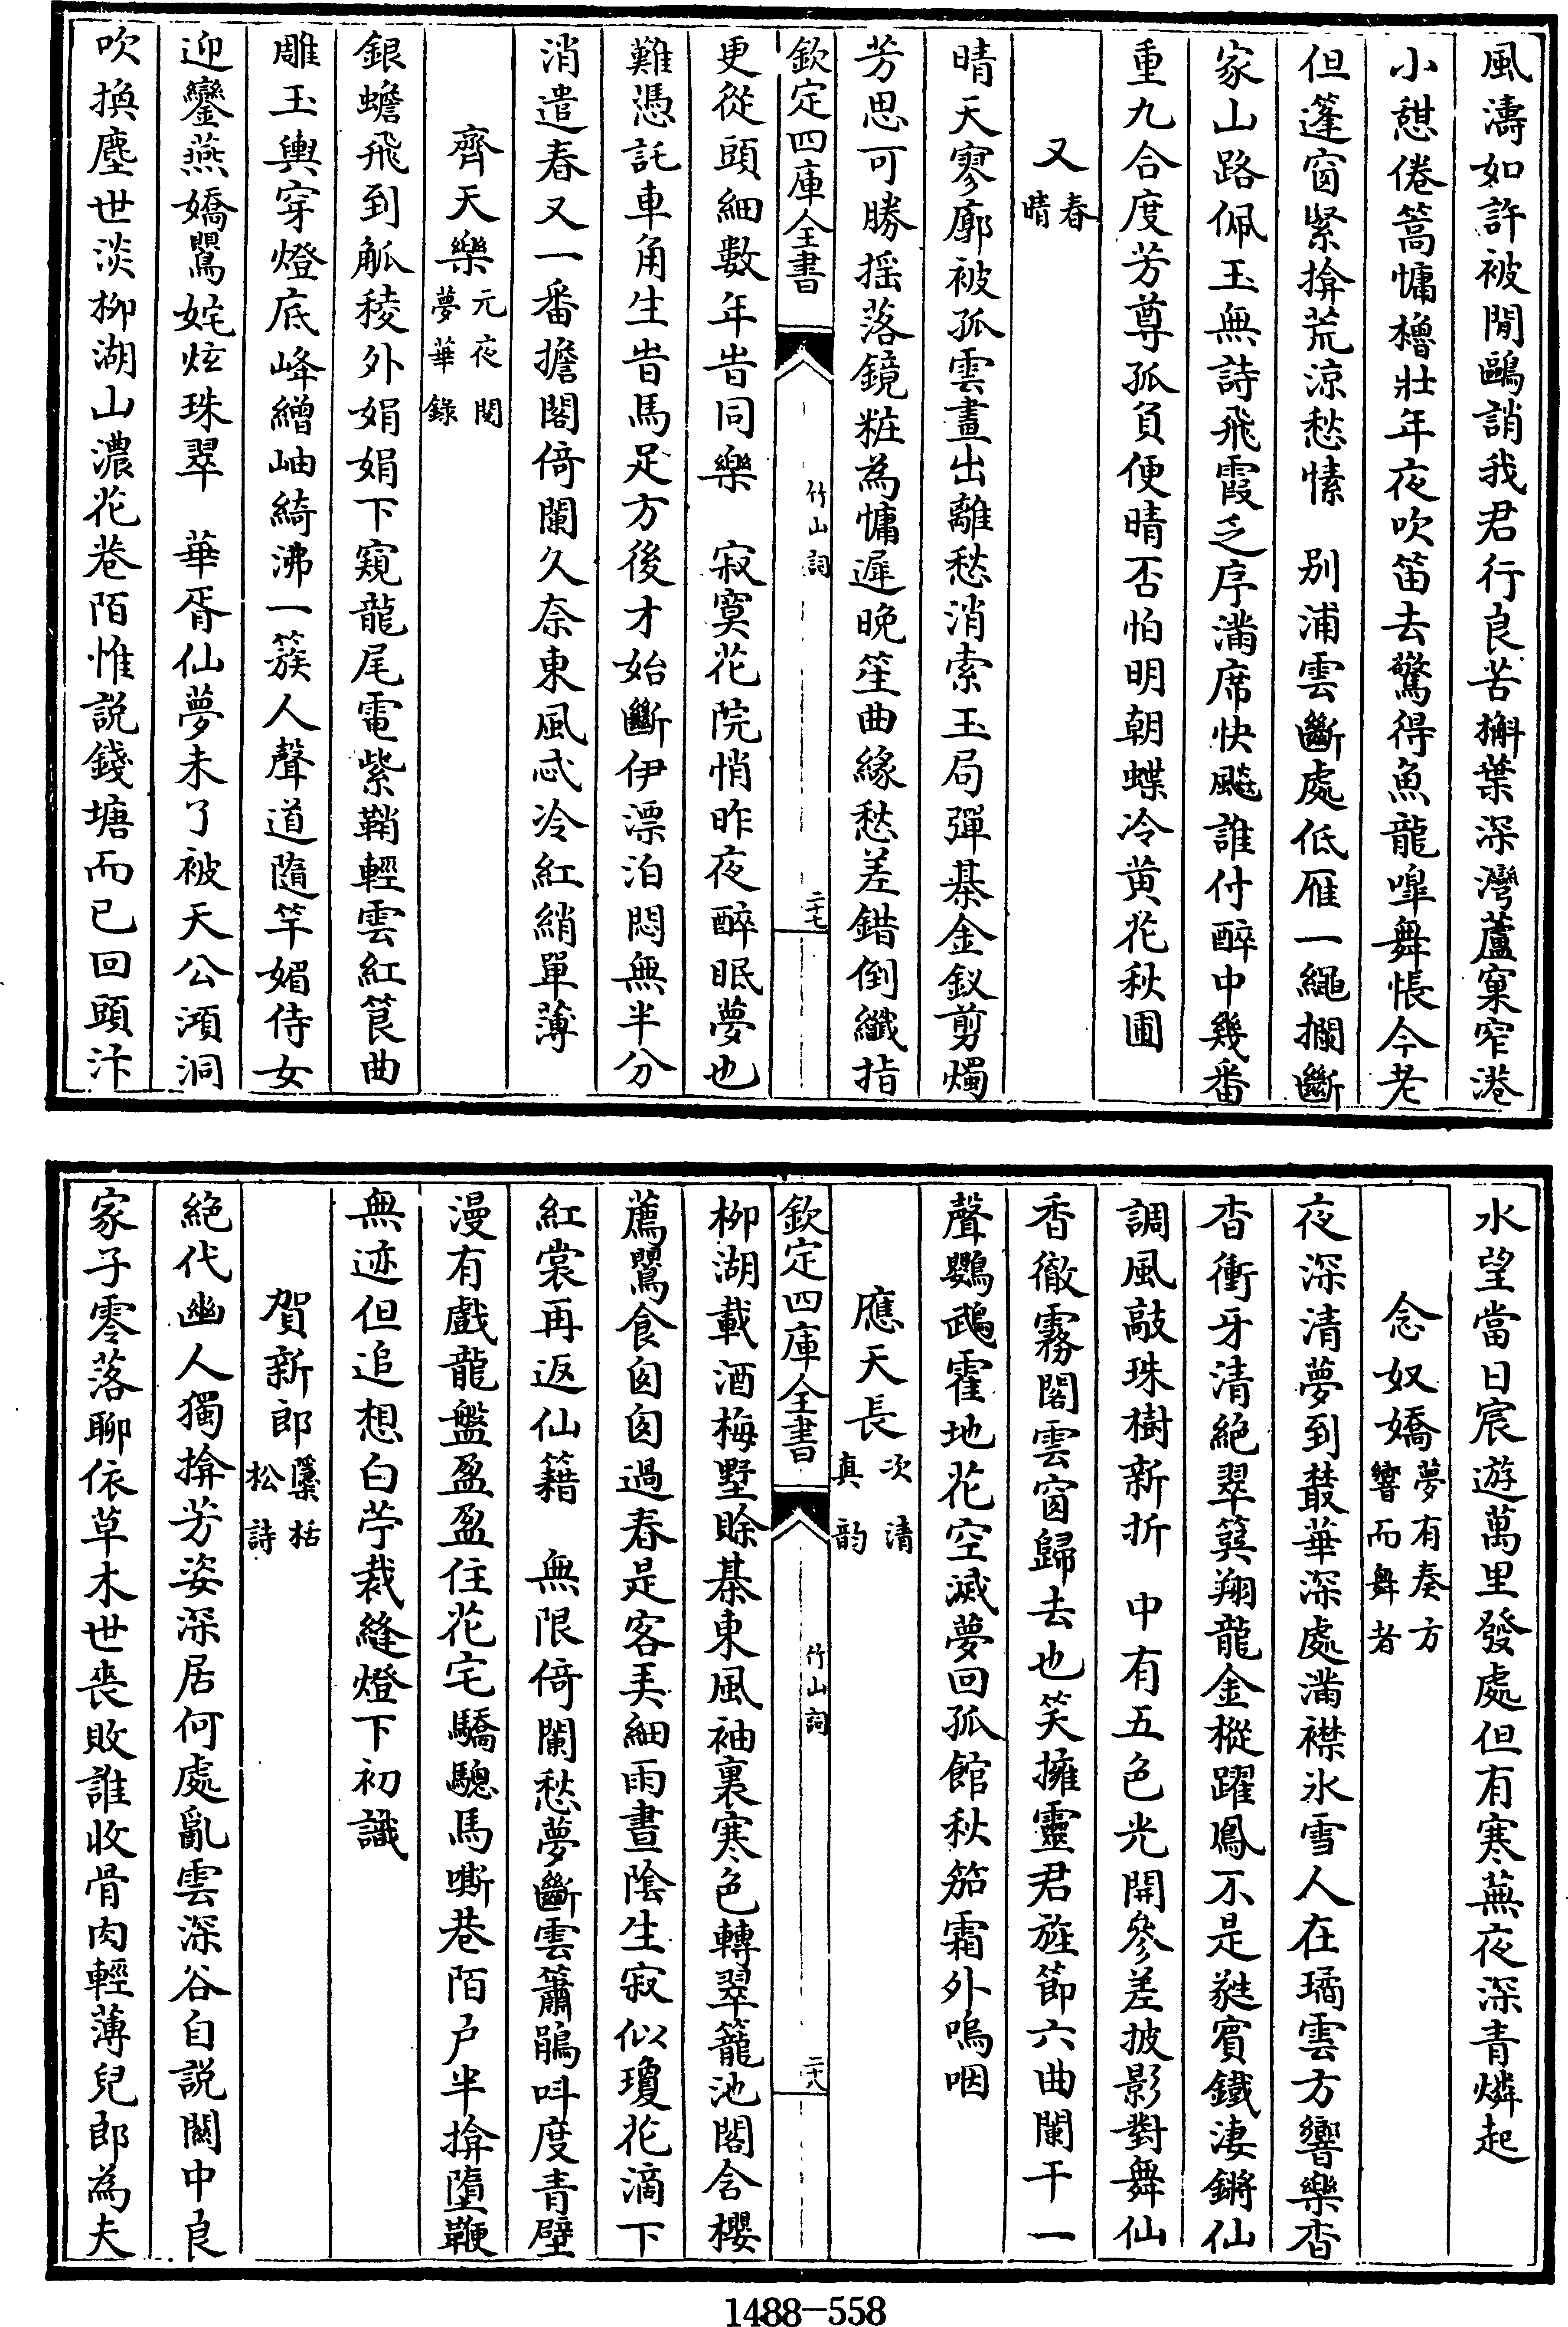 風濤如許被閒鷗誚我君行良苦槲葉深灣蘆窠窄港
小憇倦篙慵櫓壯年夜吹笛去驚得魚龍嘷舞悵今老
但篷窗緊揜荒涼愁愫　別浦雲斷處低雁一繩攔斷
家山路佩玉無詩飛霞乏序滿席快飈誰付醉中幾番
重九合度芳尊孤負便晴否怕明朝蝶冷黃花秋圃
又春晴
晴天寥廓被孤雲畫出離愁消索玉局彈棊金釵剪燭
芳思可勝揺落鏡粧為慵遲晚笙曲緣愁差錯倒纖指
欽定四庫全書
竹山詞
二十七
更從頭細數年时同樂　寂寞花院悄昨夜醉眠夢也
難憑託車角生时馬足方後才始斷伊漂泊悶無半分
消遣春又一番擔閣倚闌久奈東風忒冷紅綃單薄
齊天樂元夜閱夢華錄
銀蟾飛到觚稜外娟娟下窺龍尾電紫鞘輕雲紅筤曲
雕玉輿穿燈底峰繒岫綺沸一簇人聲道隨竿媚侍女
迎鑾燕嬌鸎姹炫珠翠　華胥仙夢未了被天公澒洞
吹換塵世淡柳湖山濃花巷陌惟説錢塘而已回頭汴
水望當日宸遊萬里發處但有寒蕪夜深青燐起
念奴嬌夢有奏方響而舞者
夜深清夢到叢華深處滿襟氷雪人在璚雲方響樂杳
杳衝牙清絕翠簨翔龍金樅躍鳳不是蕤賓鐵淒鏘仙
調風敲珠樹新折　中有五色光開參差披影對舞仙
香徹霧閣雲窗歸去也笑擁靈君旌節六曲闌干一
聲鸚鵡霍地花空滅夢回孤館秋笳霜外嗚咽
應天長次清真韵
欽定四庫全書
竹山詞
二十八
柳湖載酒梅墅賒棊東風袖裏寒色轉翠籠池閣含櫻
薦鸎食匆匆過春是客美細雨晝陰生寂似瓊花滴下
紅裳再返仙籍　無限倚闌愁夢斷雲簫鵑呌度青壁
漫有戲龍盤盈盈住花宅驕驄馬嘶巷陌户半揜墮鞭
無迹但追想白苧裁縫燈下初識
賀新郎檃栝松詩
絕代幽人獨揜芳姿深居何處亂雲深谷自説關中良
家子零落聊依草木世喪敗誰收骨肉輕薄兒郎為夫
1488—558